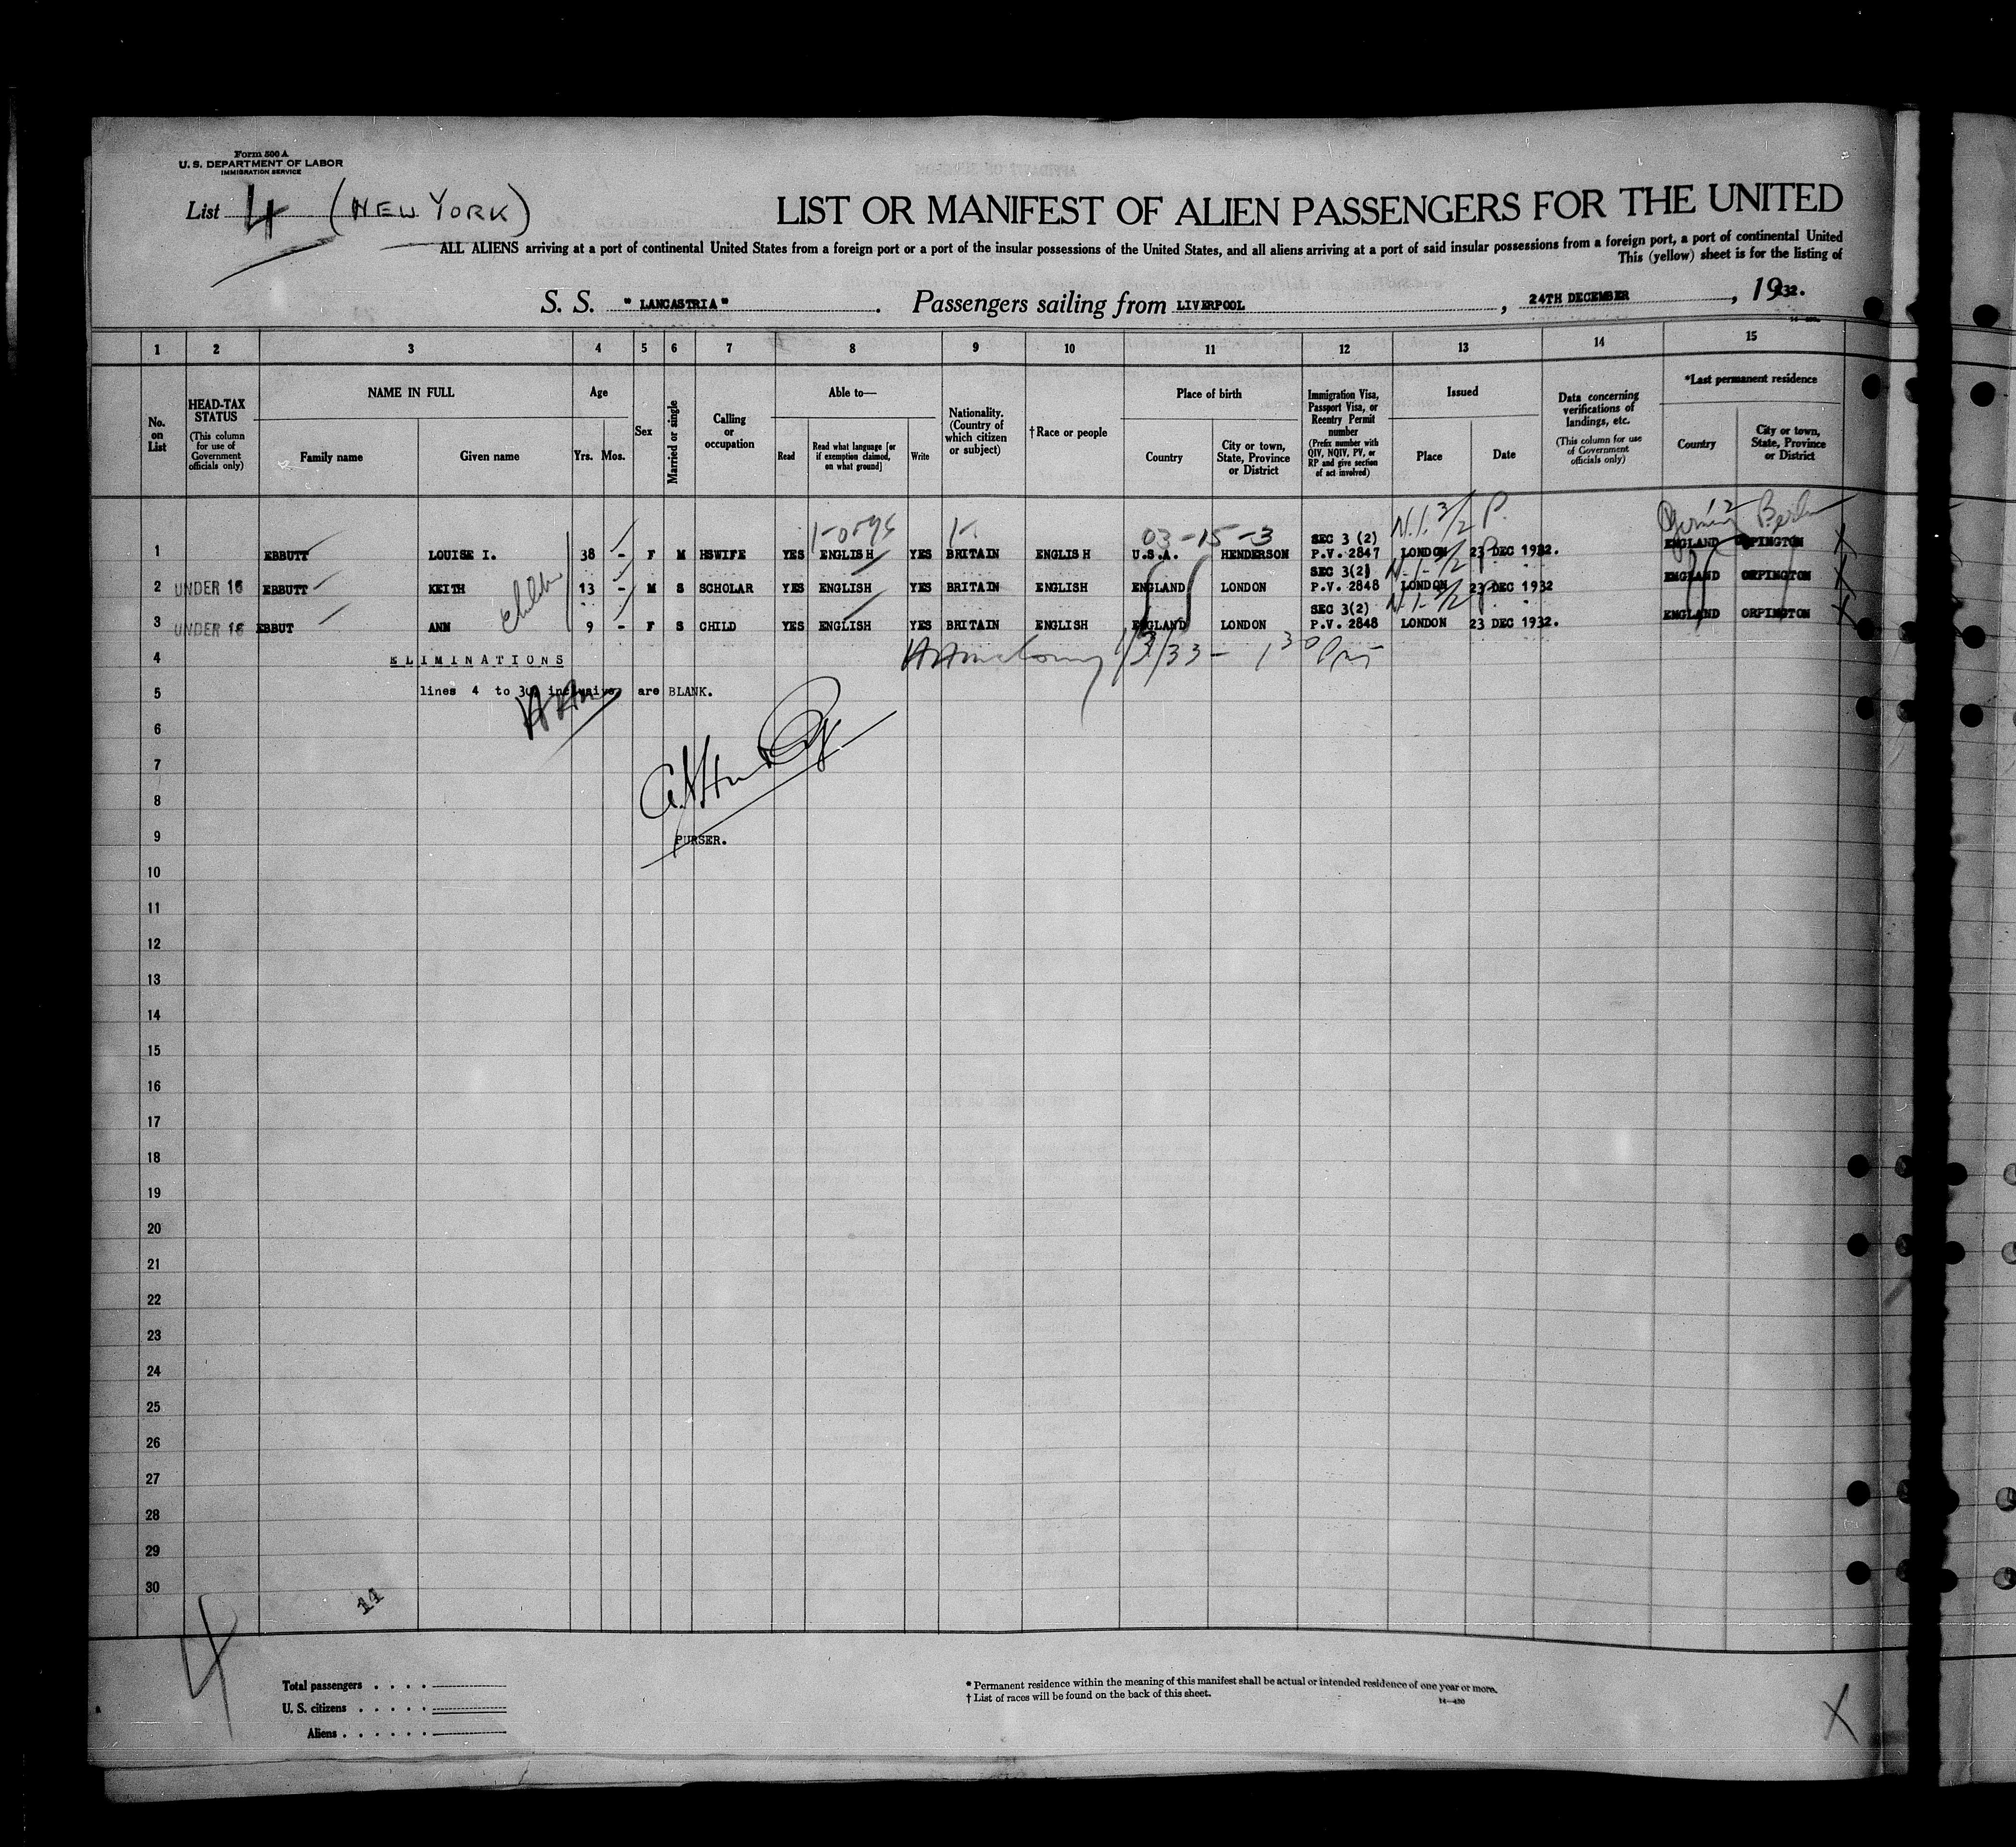 Form 500 A
U. S. DEPARTMENT OF LABOR
IMMIGRATION SERVICE
List 4 (NEW YORK)
LIST OR MANIFEST OF ALIEN PASSENGERS FOR THE UNITED
ALL ALIENS arriving at a port of continental United States from a foreign port or a port of the insular possessions of the United States, and all aliens arriving at a port of said insular possessions from a foreign port, a port of continental United
This (yellow) sheet is for the listing of
S. S. " LANCASTRIA " . Passengers sailing from LIVERPOOL , 24TH DECEMBER , 1932.
1 2 3 4 5 6 7 8 9 10 11 12 13 14 15
No. on List
HEAD-TAX STATUS (This column for use of Government officials only)
NAME IN FULL Family name Given name
Age Yrs. Mos.
Sex
Married or single
Calling or occupation
Able to— Read Read what language [or if exemption claimed, on what ground] Write
Nationality. (Country of which citizen or subject)
†Race or people
Place of birth Country City or town, State, Province or District
Immigration Visa, Passport Visa, or Reentry Permit number (Prefix number with QIV, NQIV, PV, or RP and give section of act involved)
Issued Place Date
Data concerning verifications of landings, etc. (This column for use of Government officials only)
*Last permanent residence Country City or town, State, Province or District
03-15-3 N.I. 3/2 P. 12 Berlin
SEC 3 (2)
1 EBBUTT LOUISE I. 38 - F M HSWIFE YES ENGLISH YES BRITAIN ENGLISH U.S.A. HENDERSON P.V. 2847 LONDON 23 DEC 1932. ENGLAND ORPINGTON
SEC 3(2)
2 UNDER 16 EBBUTT KEITH 13 - M S SCHOLAR YES ENGLISH YES BRITAIN ENGLISH ENGLAND LONDON P.V. 2848 LONDON 23 DEC 1932 ENGLAND ORPINGTON
SEC 3(2)
3 UNDER 16 EBBUT ANN 9 - F S CHILD YES ENGLISH YES BRITAIN ENGLISH ENGLAND LONDON P.V. 2848 LONDON 23 DEC 1932. ENGLAND ORPINGTON
4 ELIMINATIONS 1/3/33 - 1 30 Pm
5 lines 4 to 30 inclusive are BLANK.
6
7
8
9 PURSER.
10
11
12
13
14
15
16
17
18
19
20
21
22
23
24
25
26
27
28
29
30
14
4
Total passengers . . . .
U. S. citizens . . . . .
Aliens . . . . . .
* Permanent residence within the meaning of this manifest shall be actual or intended residence of one year or more.
† List of races will be found on the back of this sheet.
14—430
X